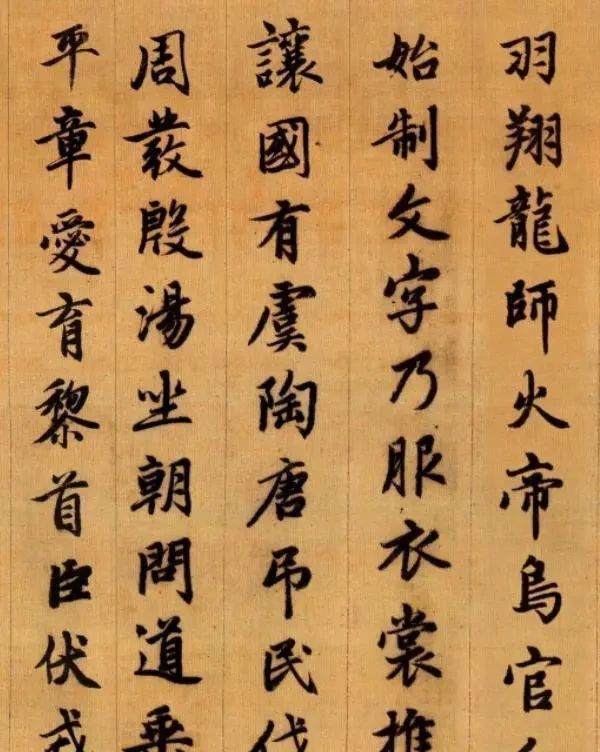 羽翔龍師火帝鳥官
始制文字乃服衣裳推
讓國有虞陶唐弔民伐
周發殷湯坐朝問道垂
平章愛育黎首臣伏戎